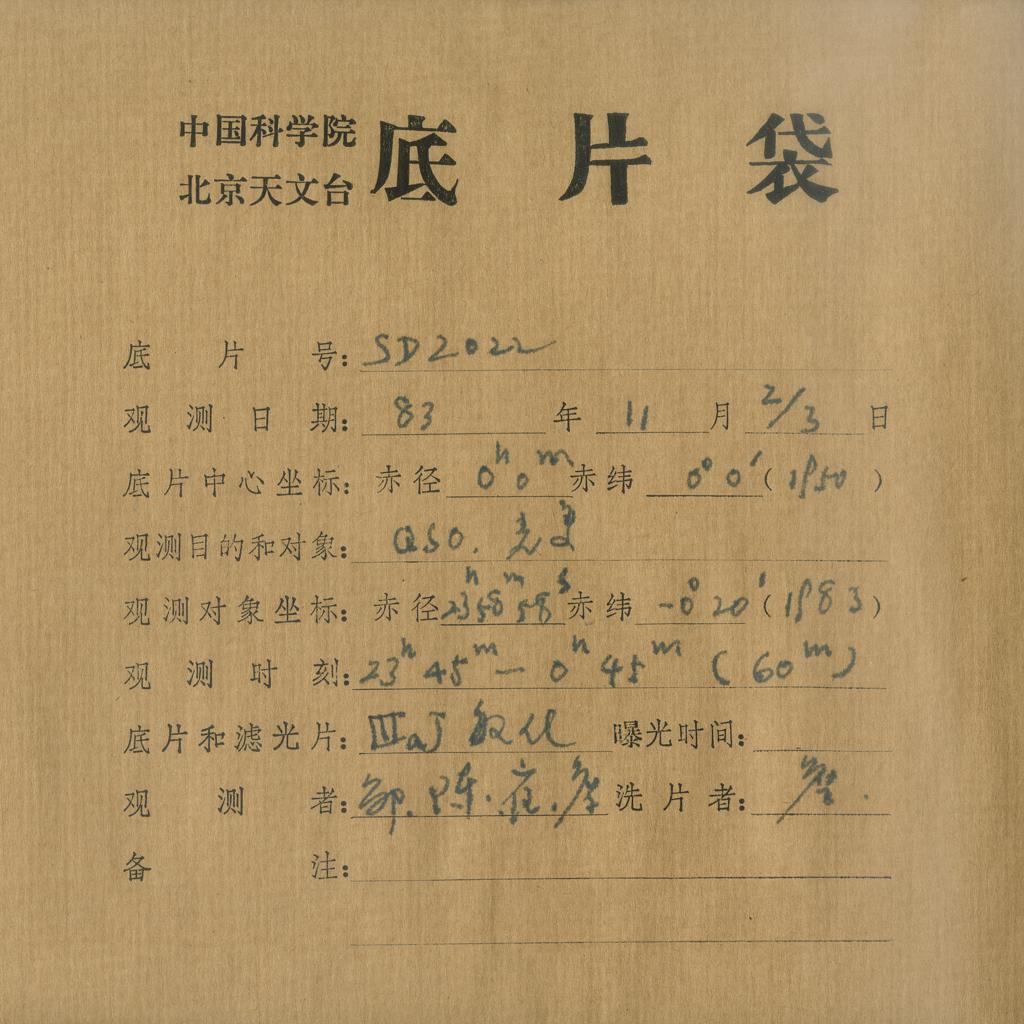 中国科学院
北京天文台
底片袋
底片号：SD2022
观测日期：83年11月2/3日
底片中心坐标：赤径0ʰ0ᵐ赤纬0°0′（1950）
观测目的和对象：QSO.光变
观测对象坐标：赤径23ʰ58ᵐ58ˢ赤纬-0°20′（1983）
观测时刻：23ʰ45ᵐ—0ʰ45ᵐ（60ᵐ）
底片和滤光片：ⅢaJ敏化 曝光时间：
观测者：邹.陈.崔. 洗片者：
备注：